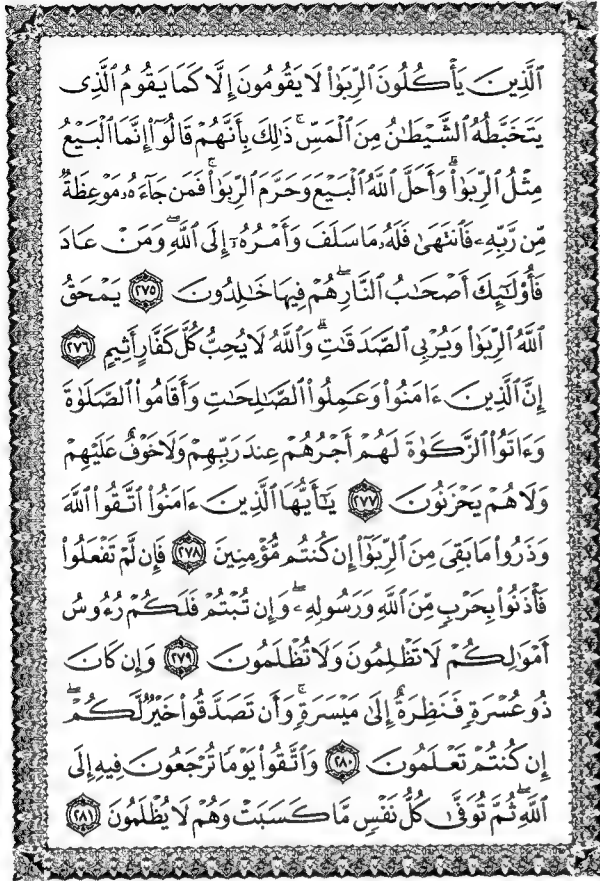 ٱلَّذِينَ يَأۡكُلُونَ ٱلرِّبَوٰاْ لَا يَقُومُونَ إِلَّا كَمَا يَقُومُ ٱلَّذِي
يَتَخَبَّطُهُ ٱلشَّيۡطَٰنُ مِنَ ٱلۡمَسِّۚ ذَٰلِكَ بِأَنَّهُمۡ قَالُوٓاْ إِنَّمَا ٱلۡبَيۡعُ
مِثۡلُ ٱلرِّبَوٰاْۗ وَأَحَلَّ ٱللَّهُ ٱلۡبَيۡعَ وَحَرَّمَ ٱلرِّبَوٰاْۚ فَمَن جَآءَهُۥ مَوۡعِظَةٞ
مِّن رَّبِّهِۦ فَٱنتَهَىٰ فَلَهُۥ مَا سَلَفَ وَأَمۡرُهُۥٓ إِلَى ٱللَّهِۖ وَمَنۡ عَادَ
فَأُوْلَٰٓئِكَ أَصۡحَٰبُ ٱلنَّارِۖ هُمۡ فِيهَا خَٰلِدُونَ ٢٧٥ يَمۡحَقُ
ٱللَّهُ ٱلرِّبَوٰاْ وَيُرۡبِي ٱلصَّدَقَٰتِۗ وَٱللَّهُ لَا يُحِبُّ كُلَّ كَفَّارٍ أَثِيمٍ ٢٧٦
إِنَّ ٱلَّذِينَ ءَامَنُواْ وَعَمِلُواْ ٱلصَّٰلِحَٰتِ وَأَقَامُواْ ٱلصَّلَوٰةَ
وَءَاتَوُاْ ٱلزَّكَوٰةَ لَهُمۡ أَجۡرُهُمۡ عِندَ رَبِّهِمۡ وَلَا خَوۡفٌ عَلَيۡهِمۡ
وَلَا هُمۡ يَحۡزَنُونَ ٢٧٧ يَٰٓأَيُّهَا ٱلَّذِينَ ءَامَنُواْ ٱتَّقُواْ ٱللَّهَ
وَذَرُواْ مَا بَقِيَ مِنَ ٱلرِّبَوٰٓاْ إِن كُنتُم مُّؤۡمِنِينَ ٢٧٨ فَإِن لَّمۡ تَفۡعَلُواْ
فَأۡذَنُواْ بِحَرۡبٖ مِّنَ ٱللَّهِ وَرَسُولِهِۦۖ وَإِن تُبۡتُمۡ فَلَكُمۡ رُءُوسُ
أَمۡوَٰلِكُمۡ لَا تَظۡلِمُونَ وَلَا تُظۡلَمُونَ ٢٧٩ وَإِن كَانَ
ذُو عُسۡرَةٖ فَنَظِرَةٌ إِلَىٰ مَيۡسَرَةٖۚ وَأَن تَصَدَّقُواْ خَيۡرٞ لَّكُمۡۖ
إِن كُنتُمۡ تَعۡلَمُونَ ٢٨٠ وَٱتَّقُواْ يَوۡمٗا تُرۡجَعُونَ فِيهِ إِلَى
ٱللَّهِۖ ثُمَّ تُوَفَّىٰ كُلُّ نَفۡسٖ مَّا كَسَبَتۡ وَهُمۡ لَا يُظۡلَمُونَ ٢٨١